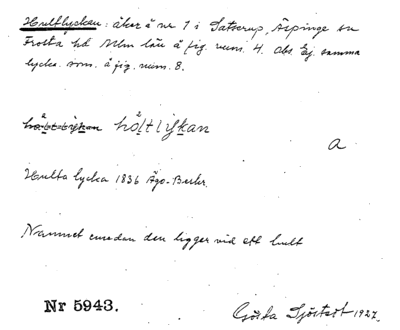 Hultlyckan: åker å nr 1 i Satserup, Äspinge sn
Frosta hd Mlm län å fig. num. 4. Obs. Ej. samma
lycka. som. å fig. num. 8.
hå̊ltlyc̶kan hå̊ltlyckan
a
Hulta lycka 1836 Ägo-Beskr.
Namnet emedan den ligger vid ett hult
Nr 5943.
Gösta Sjöstedt 1927.